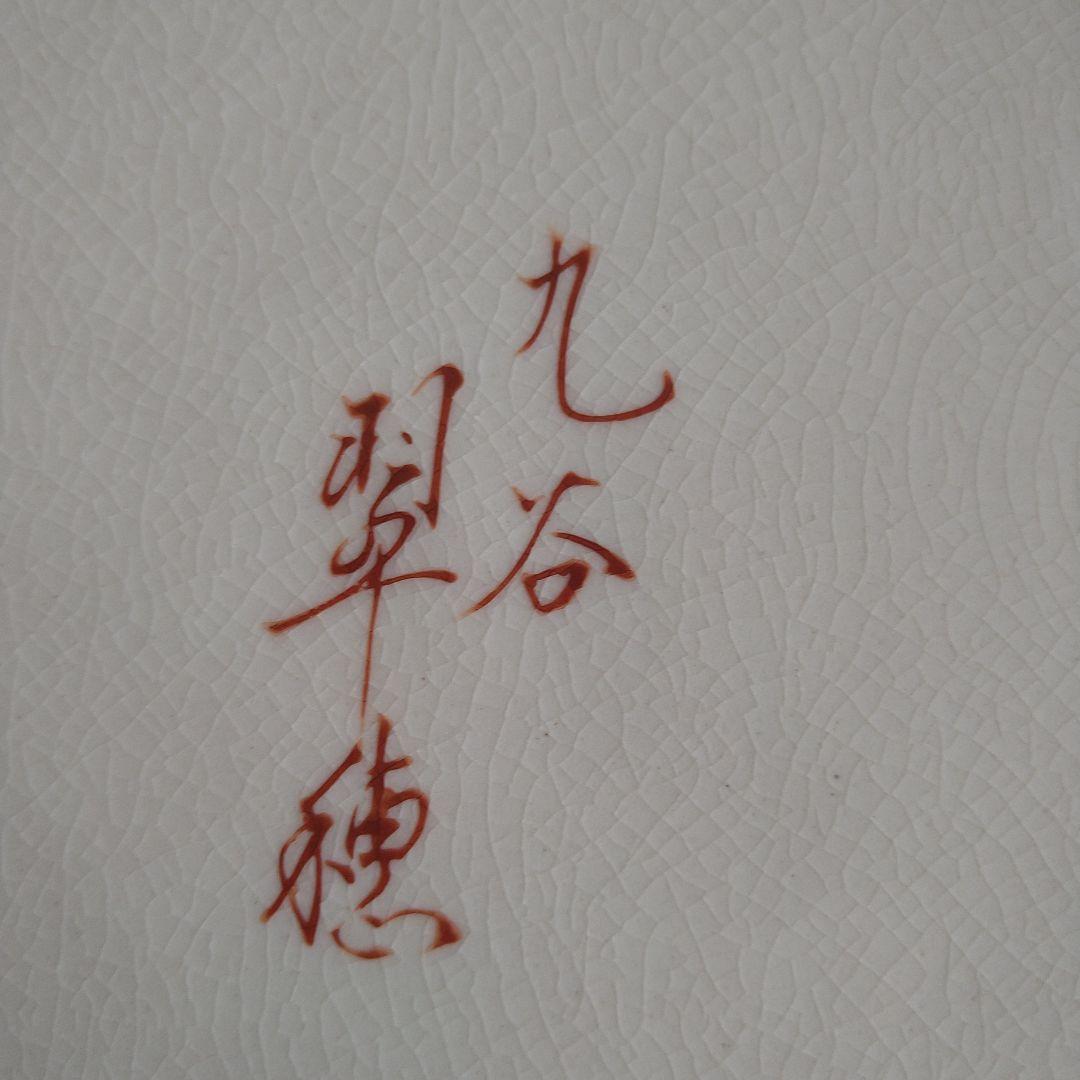 九谷
翠穂